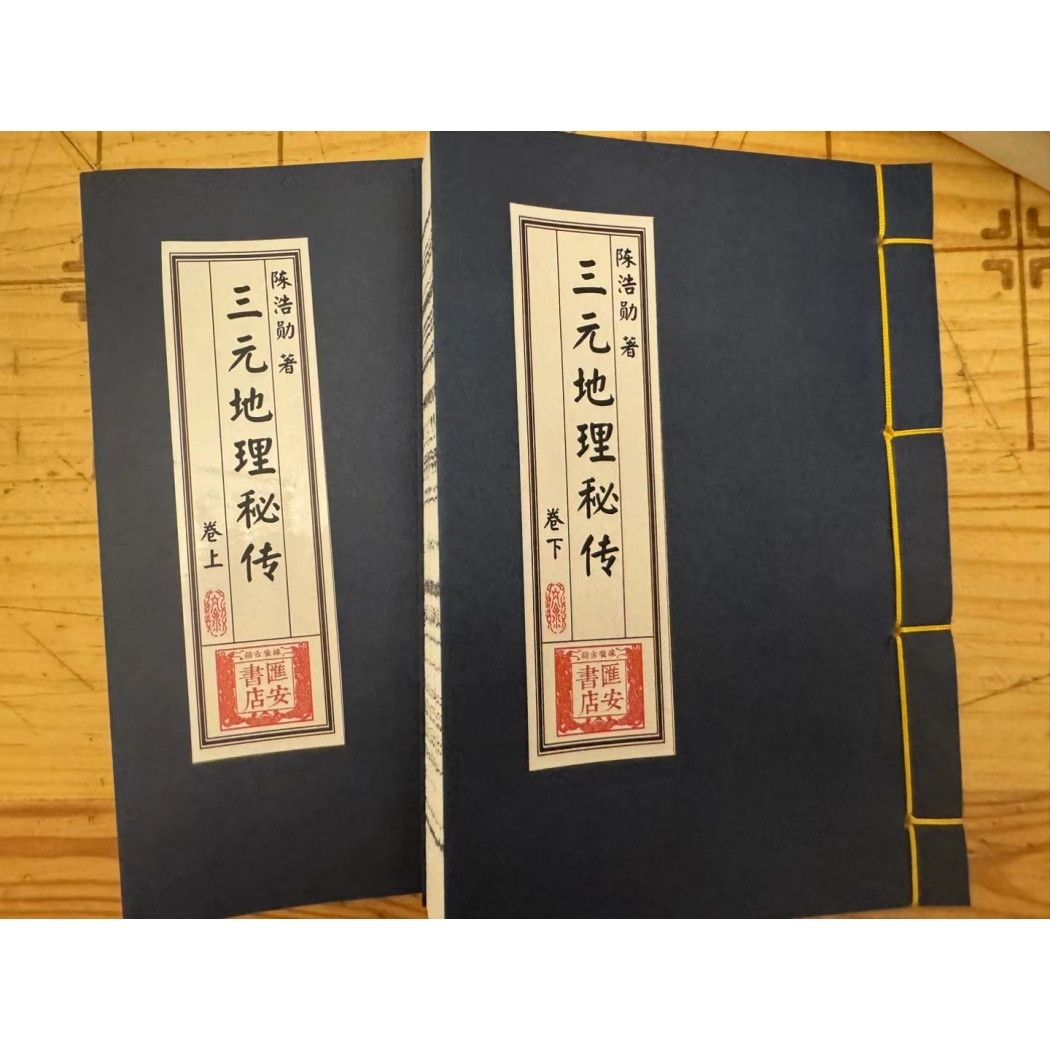 陈浩勋 著
三元地理秘传
卷上
匯安
書店
陈浩勋 著
三元地理秘传
卷下
匯安
書店